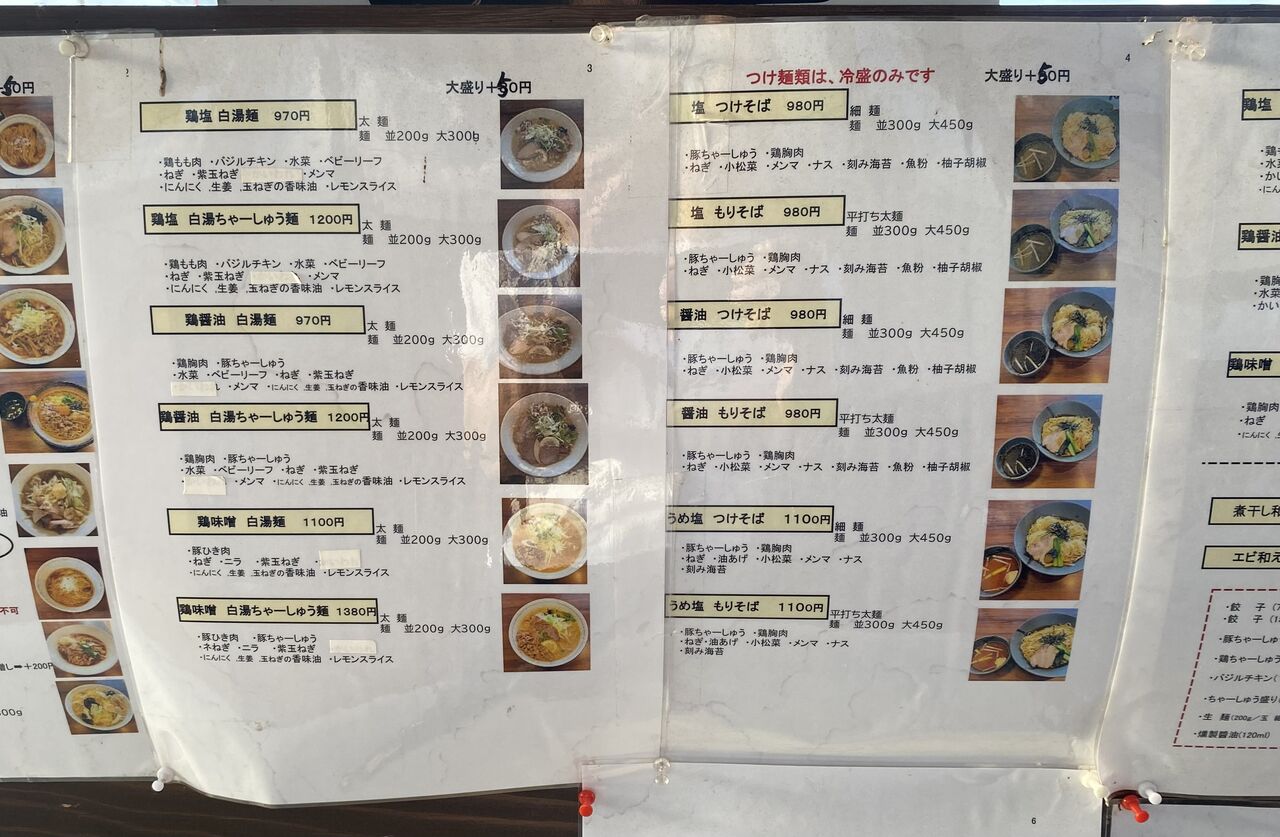 50円
油
不可
増し➡+200円
300g
3
大盛り+50円
鶏塩 白湯麺 970円
太 麺
麺 並200g 大300g
・鶏もも肉 ・バジルチキン ・水菜 ・ベビーリーフ
・ねぎ ・紫玉ねぎ ・メンマ
・にんにく ,生姜 ,玉ねぎの香味油 ・レモンスライス
鶏塩 白湯ちゃーしゅう麺 1200円
太 麺
麺 並200g 大300g
・鶏もも肉 ・バジルチキン ・水菜 ・ベビーリーフ
・ねぎ ・紫玉ねぎ ・メンマ
・にんにく ,生姜 ,玉ねぎの香味油 ・レモンスライス
鶏醤油 白湯麺 970円
太 麺
麺 並200g 大300g
・鶏胸肉 ・豚ちゃーしゅう
・水菜 ・ベビーリーフ ・ねぎ ・紫玉ねぎ
・メンマ ・にんにく ,生姜 ,玉ねぎの香味油 ・レモンスライス
鶏醤油 白湯ちゃーしゅう麺 1200円
太 麺
麺 並200g 大300g
・鶏胸肉 ・豚ちゃーしゅう
・水菜 ・ベビーリーフ ・ねぎ ・紫玉ねぎ
・メンマ ・にんにく ,生姜 ,玉ねぎの香味油 ・レモンスライス
鶏味噌 白湯麺 1100円
太 麺
麺 並200g 大300g
・豚ひき肉
・ねぎ ・ニラ ・紫玉ねぎ
・にんにく ,生姜 ,玉ねぎの香味油 ・レモンスライス
鶏味噌 白湯ちゃーしゅう麺 1380円
太 麺
麺 並200g 大300g
・豚ひき肉 ・豚ちゃーしゅう
・ネねぎ ・ニラ ・紫玉ねぎ
・にんにく ,生姜 ,玉ねぎの香味油 ・レモンスライス
4
つけ麺類は、冷盛のみです
大盛り+50円
塩 つけそば 980円
細 麺
麺 並300g 大450g
・豚ちゃーしゅう ・鶏胸肉
・ねぎ ・小松菜 ・メンマ ・ナス ・刻み海苔 ・魚粉 ・柚子胡椒
塩 もりそば 980円
平打ち太麺
麺 並300g 大450g
・豚ちゃーしゅう ・鶏胸肉
・ねぎ ・小松菜 ・メンマ ・ナス ・刻み海苔 ・魚粉 ・柚子胡椒
醤油 つけそば 980円
細 麺
麺 並300g 大450g
・豚ちゃーしゅう ・鶏胸肉
・ねぎ ・小松菜 ・メンマ ・ナス ・刻み海苔 ・魚粉 ・柚子胡椒
醤油 もりそば 980円
平打ち太麺
麺 並300g 大450g
・豚ちゃーしゅう ・鶏胸肉
・ねぎ ・小松菜 ・メンマ ・ナス ・刻み海苔 ・魚粉 ・柚子胡椒
うめ塩 つけそば 1100円
細 麺
麺 並300g 大450g
・豚ちゃーしゅう ・鶏胸肉
・ねぎ ・油あげ ・小松菜 ・メンマ ・ナス
・刻み海苔
うめ塩 もりそば 1100円
平打ち太麺
麺 並300g 大450g
・豚ちゃーしゅう ・鶏胸肉
・ねぎ・油あげ ・小松菜 ・メンマ ・ナス
・刻み海苔
鶏塩
・鶏も
・水
・かい
・にん
鶏醤油
・鶏胸
・水菜
・かい
鶏味噌
・鶏胸
・ねぎ
・にん
煮干し和
エビ和え
・餃 子
・餃 子
・豚ちゃーしゅ
・鶏ちゃーしゅ
・バジルチキン(
・ちゃーしゅう盛り
・生 麺(200g/玉
・燻製醤油(120ml)
6